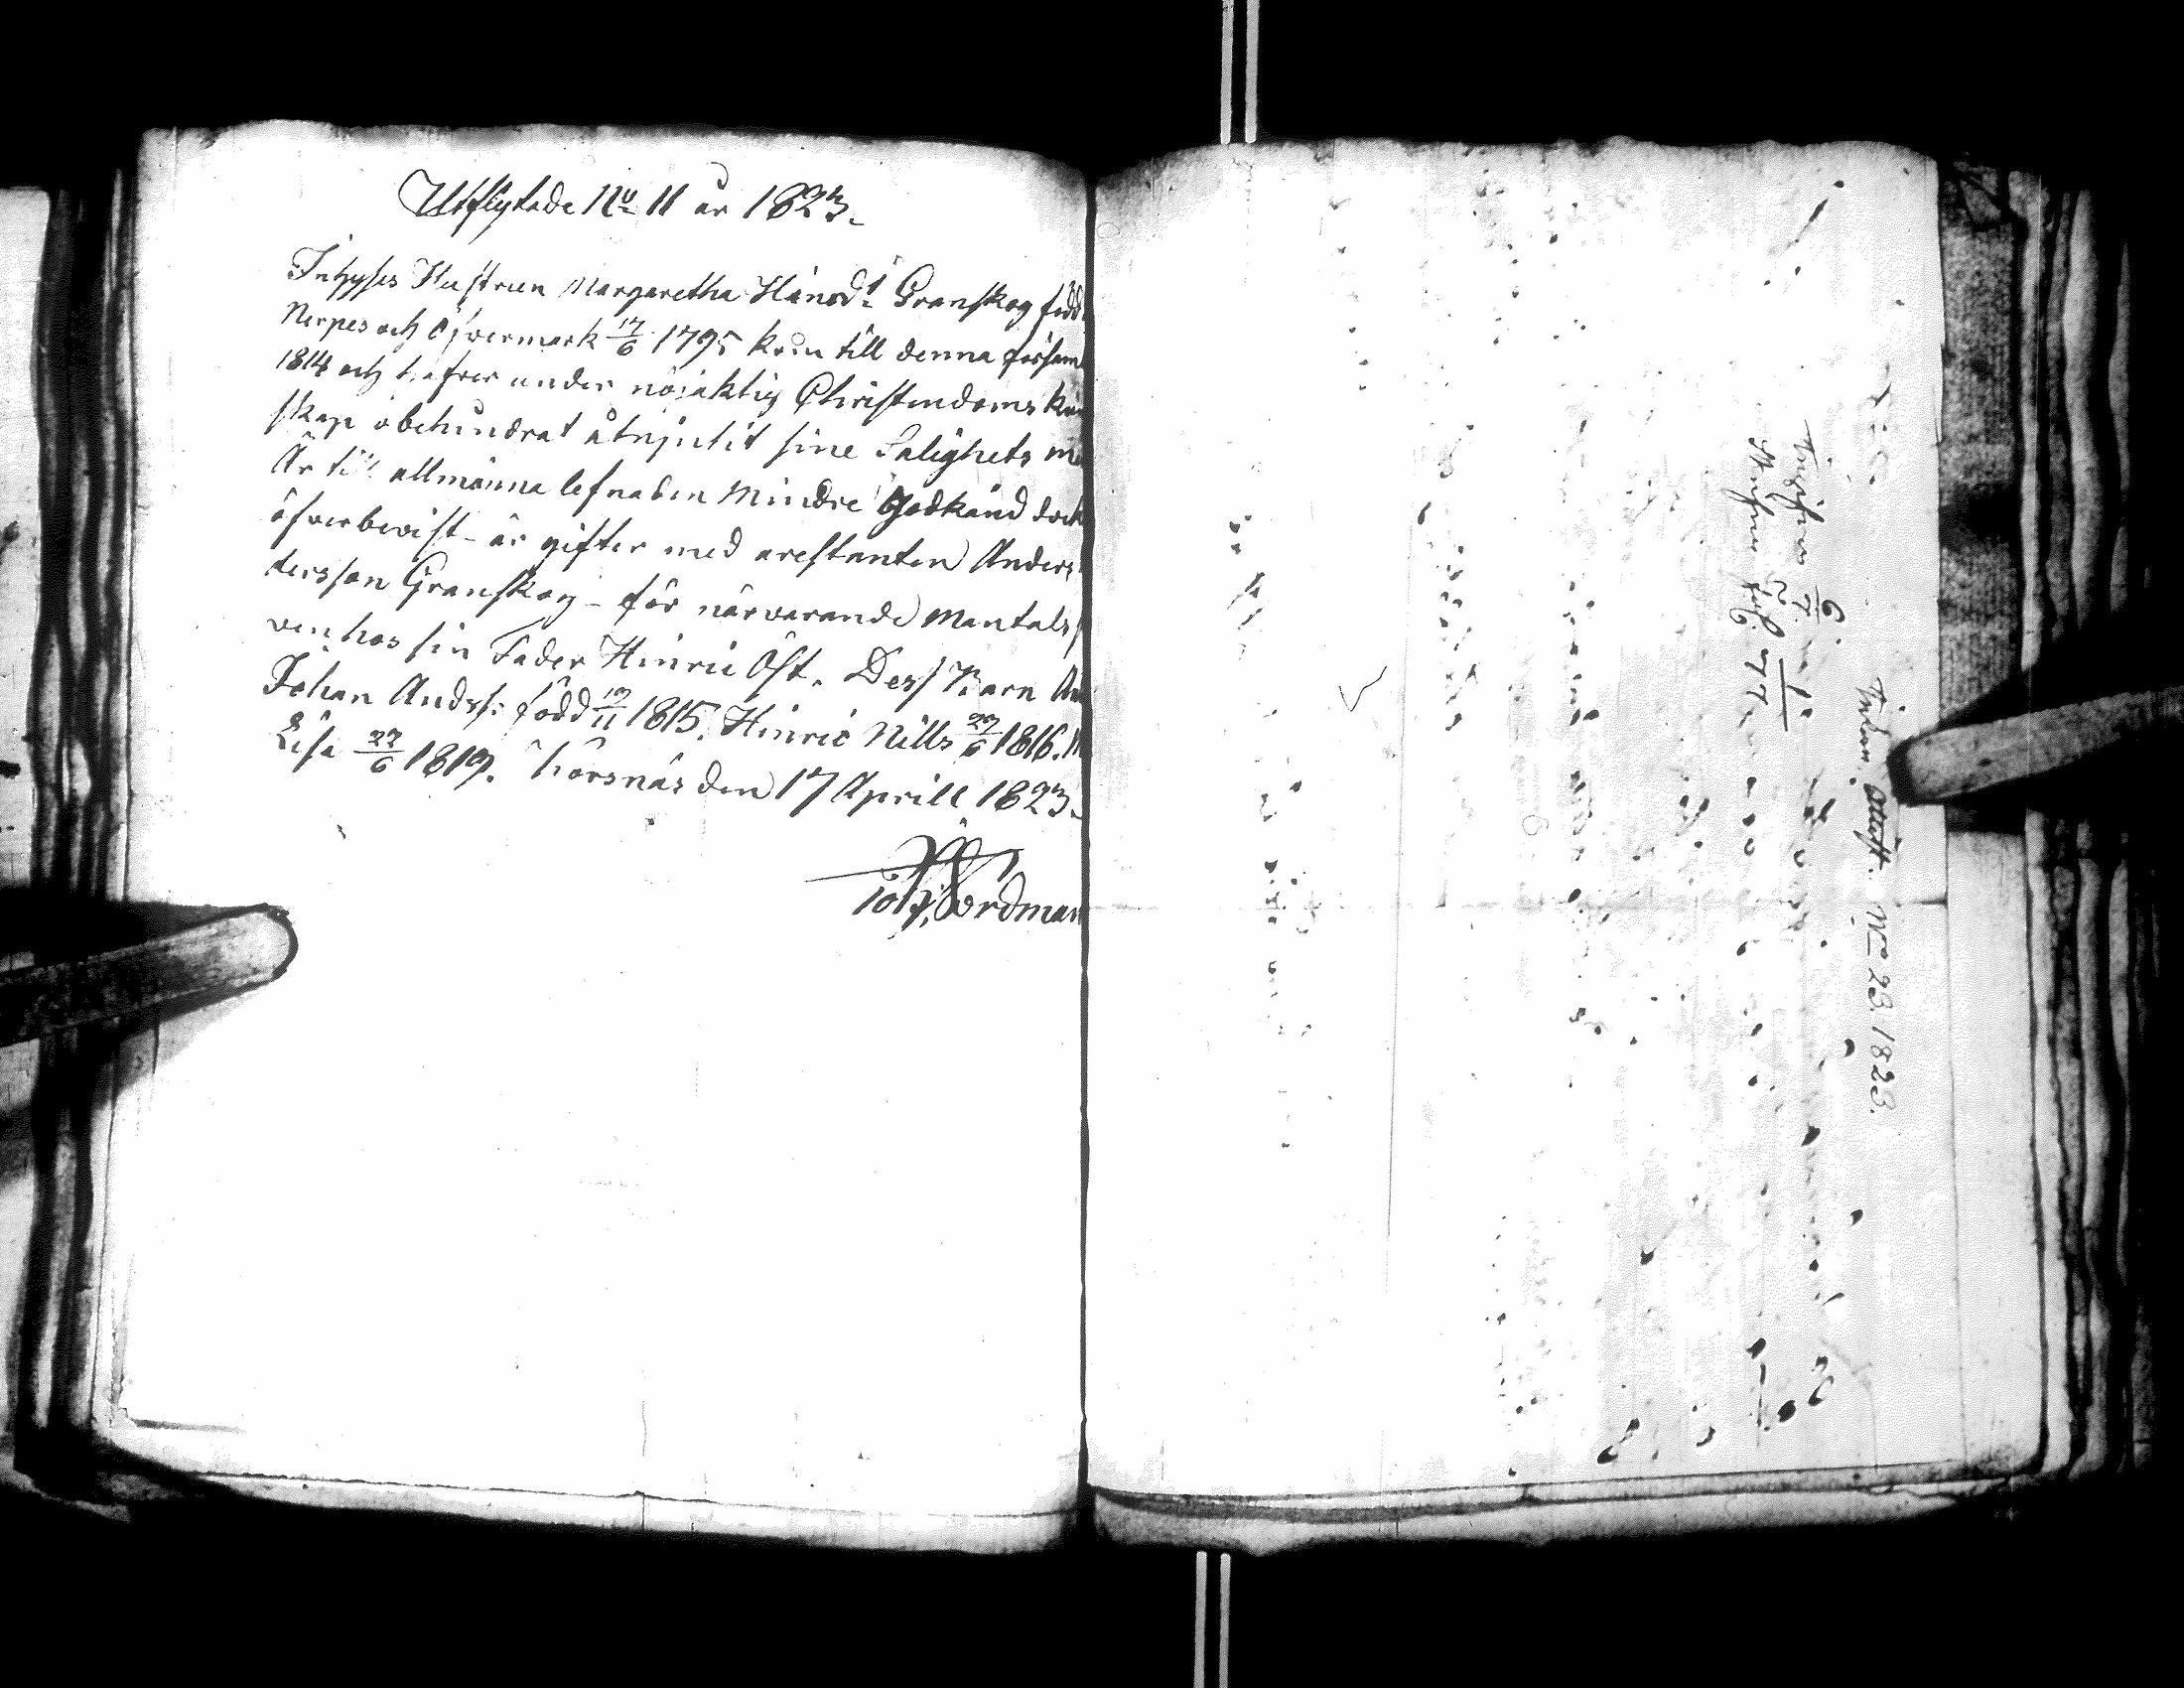 Utflyttade No 11 år 1823.
Intygas Hustrun Margaretha Hinrsdr Granskog född
Nerpes och Öfvermark 17/6 1795 kom till denna försam
1814 och hafver under nöjaktig Christendoms kän
skap obehindrat åtnjutit sine Salighets me
Är till allmänna lefnaden Mindre Godkänd dock
öfverbevist – är gifter med arestanten Anders
dersson Granskog – för närvarande Mantals s
ven hos sin Fader Hinric Öst. Dess Barn An
Johan Andss. född 19/11 1815. Hinric Nills 27/6 1816. M
Lisa 22/6 1819. Korsnäs den 17 Aprill 1823.
Joh. Nordman
Attest. No 23. 1823.
6/7
77